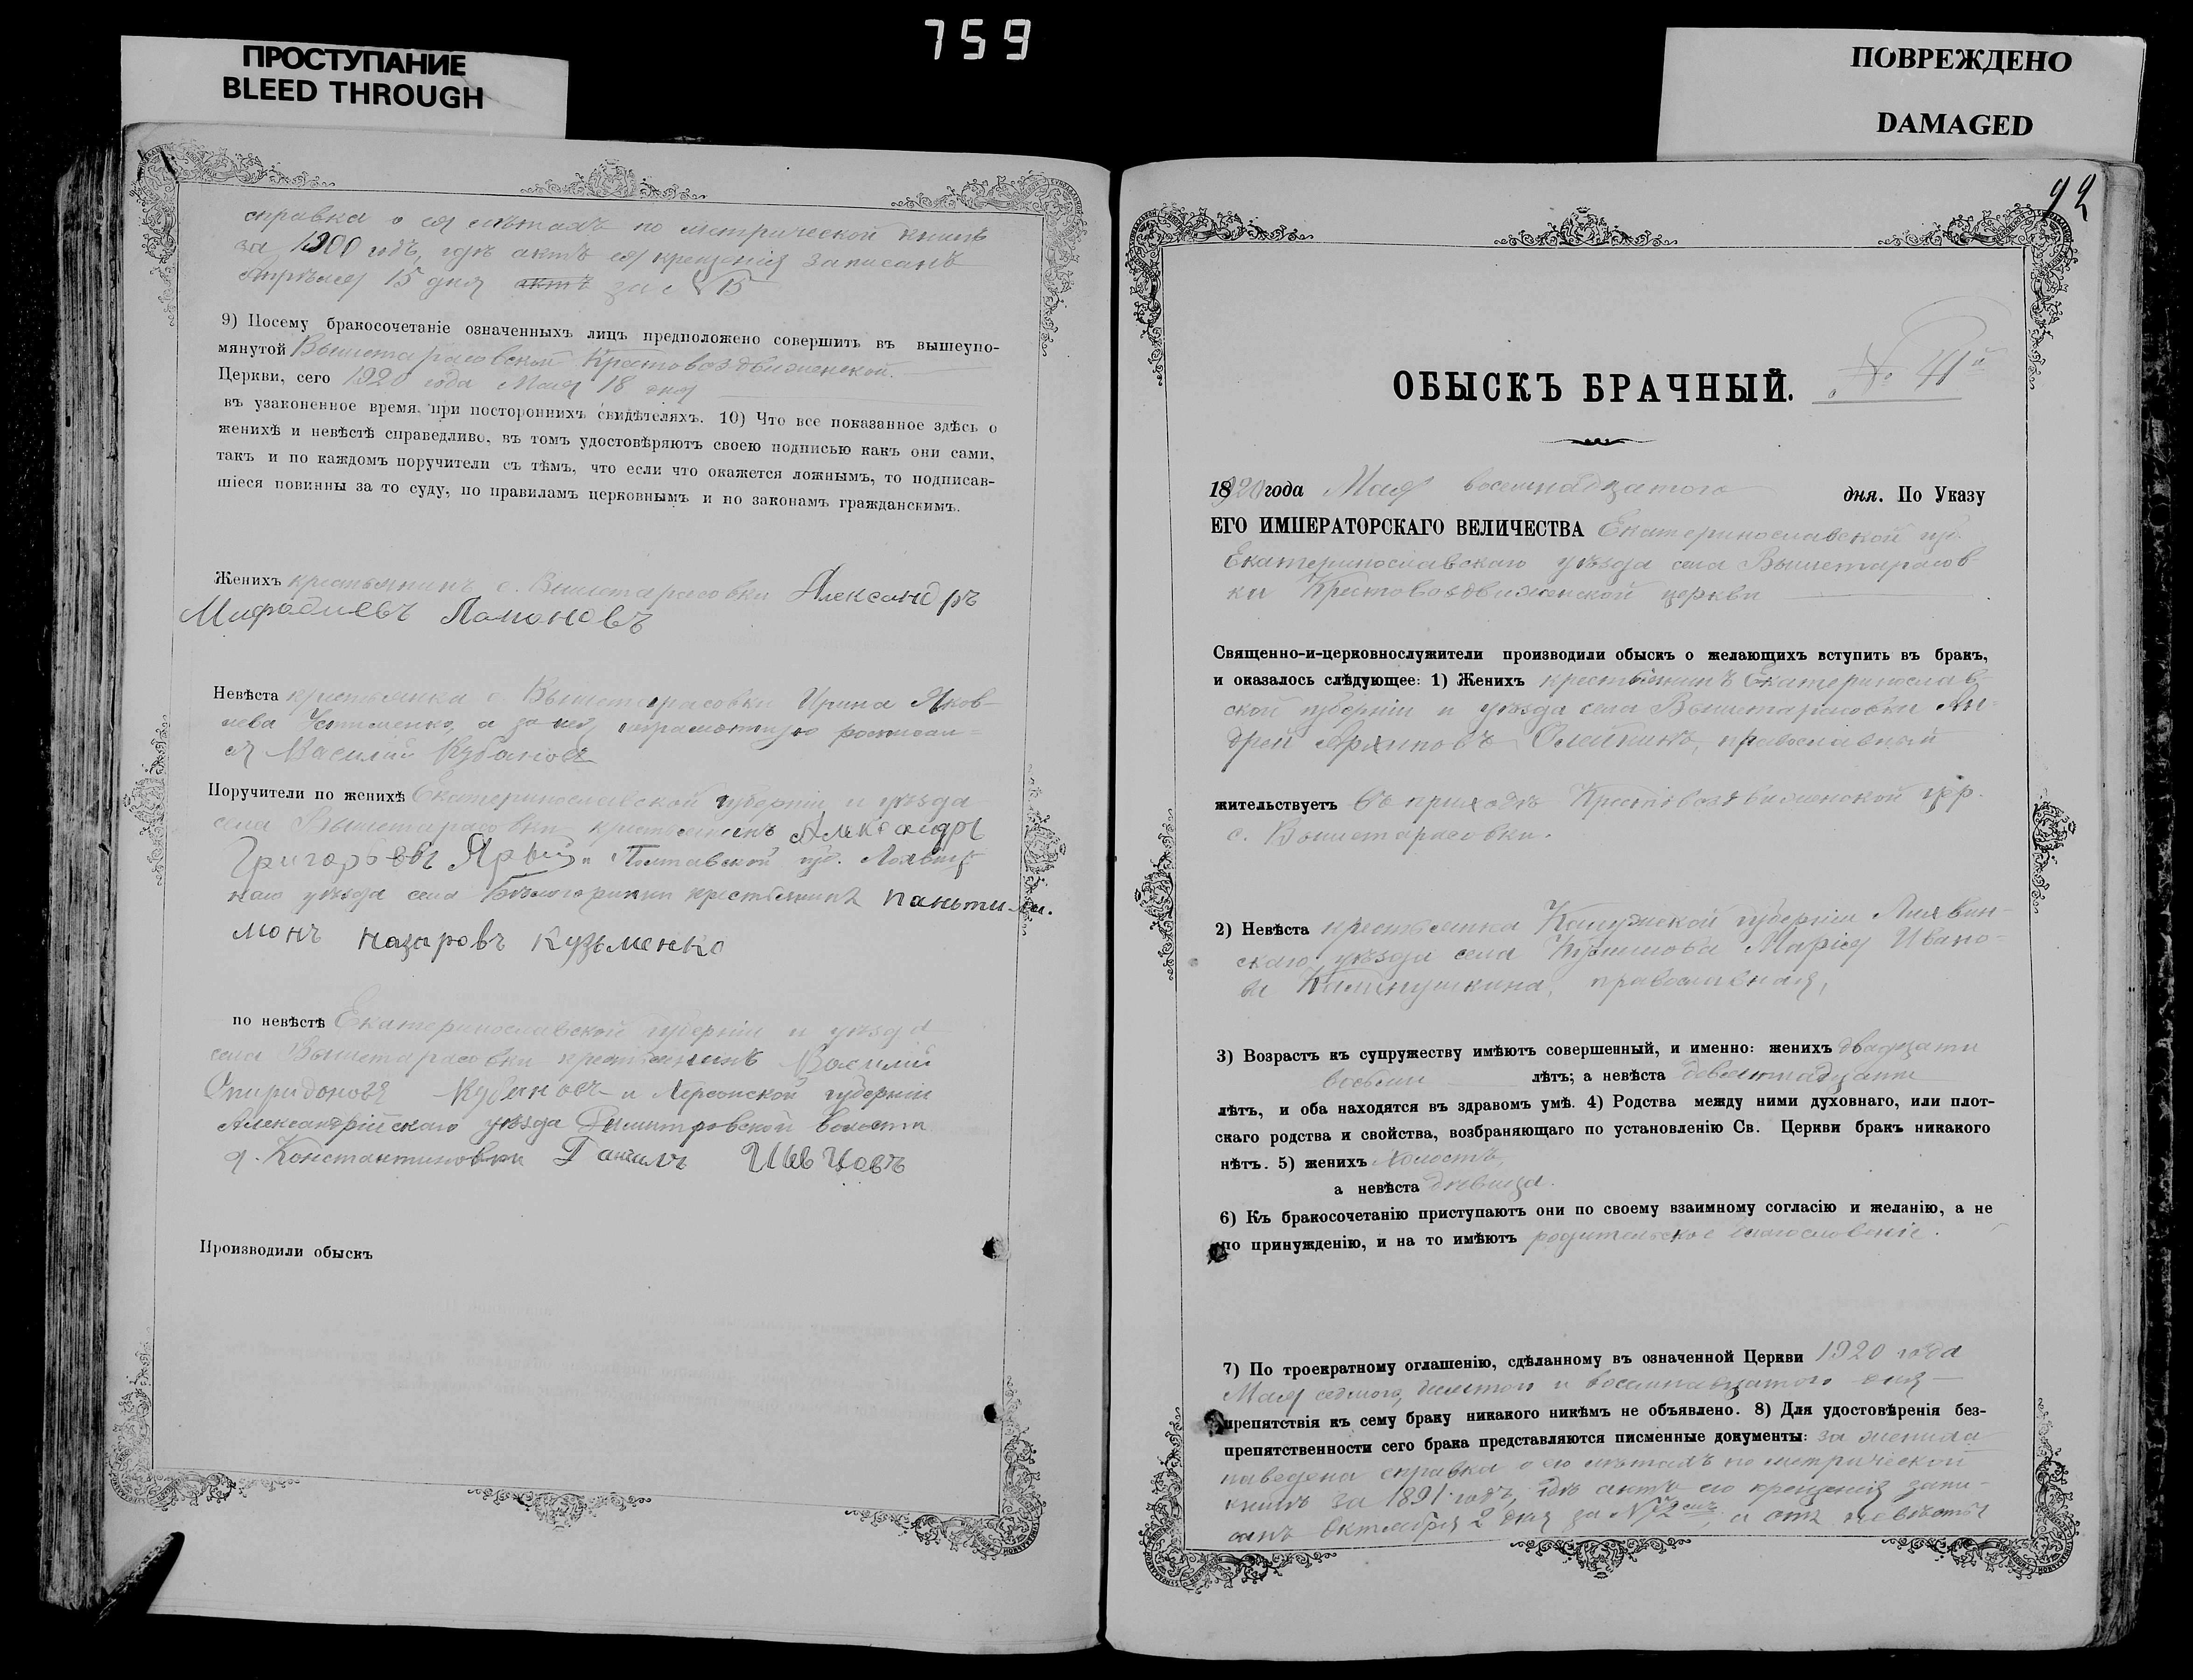 759
ПРОСТУПАНИЕ
BLEED THROUGH
ПОВРЕЖДЕНО
DAMAGED
справка о ея лѣтахъ по метрической книгѣ
за 1900 годъ, гдѣ актъ ея крещенія записанъ
Апрѣля 15 дня актъ за №
9) Посему бракосочетаніе означенныхъ лицъ предположено совершить въ вышеупо-
мянутой Вышетарасовской Крестовоздвиженской
Церкви, сего 1920 года Мая 18 дня
въ узаконенное время, при постороннихъ свидѣтеляхъ. 10) Что все показанное здѣсь о
женихѣ и невѣстѣ справедливо, въ томъ удостовѣряютъ своею подписью какъ они сами,
такъ и по каждомъ поручители съ тѣмъ, что если что окажется ложнымъ, то подписав-
шіеся повинны за то суду, по правиламъ церковнымъ и по законамъ гражданскимъ.
Женихъ крестьянинъ с. Вышетарасовки Александръ
Мифодиевъ
Невѣста крестьянка с. Вышетарасовки Ирина Яков-
лева Устименко, а за неё, неграмотную росписал-
ся Василій Кубановъ
Поручители по женихѣ Екатеринославской губерніи и уѣзда
села Вышетарасовки крестьянинъ Александръ
Григорьевъ Ярый и Полтавской губ.
уѣзда села крестьянинъ Паньтили-
монъ Назаровъ Кузьменко
по невѣстѣ Екатеринославской губерніи и уѣзда
села Вышетарасовки крестьянинъ Василій
Спиридоновъ Кубановъ и Херсонской губерніи
Александрійскаго уѣзда Димитровской волости
д. Константиновки Данилъ Швцовъ
Производили обыскъ
92
ОБЫСКЪ БРАЧНЫЙ. № 41й
1920 года Мая восемнадцатого дня. По Указу
ЕГО ИМПЕРАТОРСКАГО ВЕЛИЧЕСТВА Екатеринославской губ.
Екатеринославскаго уѣзда села Вышетарасов
ки Крестовоздвиженской церкви
Священно-и-церковнослужители производили обыскъ о желающихъ вступить въ бракъ,
и оказалось слѣдующее: 1) Женихъ крестьянинъ Екатеринослав
ской губерніи и уѣзда села Вышетарасовки Ан-
дрей Архиповъ Олейникъ, православный
жительствуетъ въ приходѣ Крестовоздвиженской цер.
с. Вышетарасовки.
2) Невѣста крестьянка Калужской губерніи Лихвин-
скаго уѣзда села Марія Ивано-
ва православная,
3) Возрастъ къ супружеству имѣютъ совершенный, и именно: женихъ двадцати
восьми лѣтъ; а невѣста девятнадцати
лѣтъ, и оба находятся въ здравомъ умѣ. 4) Родства между ними духовнаго, или плот-
скаго родства и свойства, возбраняющаго по установленію Св. Церкви бракъ никакого
нѣтъ. 5) женихъ холостъ,
а невѣста дѣвица.
6) Къ бракосочетанію приступаютъ они по своему взаимному согласію и желанію, а не
по принужденію, и на то имѣютъ родительское благословеніе.
7) По троекратному оглашенію, сдѣланному въ означенной Церкви 1920 года
Мая седьмого, десятого и восемнадцатого дня
препятствія къ сему браку никакого никѣмъ не объявлено. 8) Для удостовѣренія без-
препятственности сего брака представляются писменные документы: за жениха
наведена справка о его лѣтахъ по метрической
книгѣ за 1891 годъ, гдѣ актъ его крещенія запи-
санъ Октября 2 дня за № 72 а отъ невѣсты